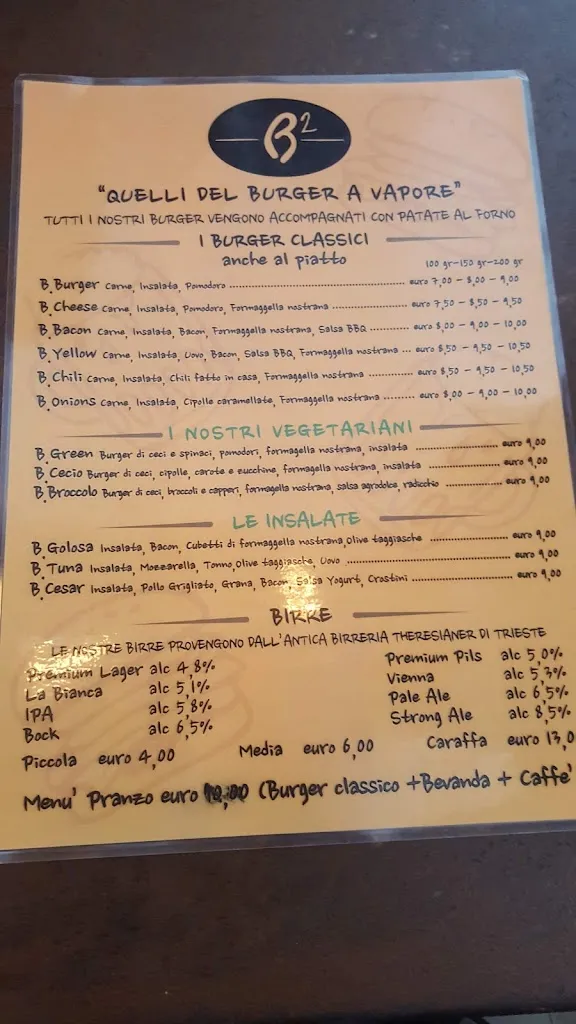 B²
"QUELLI DEL BURGER A VAPORE"
TUTTI I NOSTRI BURGER VENGONO ACCOMPAGNATI CON PATATE AL FORNO
I BURGER CLASSICI
anche al piatto
100 gr-150 gr-200 gr
B.Burger Carne, Insalata, Pomodoro euro 7,00 - 8,00 - 9,00
B.Cheese Carne, Insalata, Pomodoro, Formaggella nostrana euro 7,50 - 8,50 - 9,50
B.Bacon Carne, Insalata, Bacon, Formaggella nostrana, Salsa BBQ euro 8,00 - 9,00 - 10,00
B.Yellow Carne, Insalata, Uovo, Bacon, Salsa BBQ, Formaggella nostrana euro 8,50 - 9,50 - 10,50
B.Chili Carne, Insalata, Chili fatto in casa, Formaggella nostrana euro 8,50 - 9,50 - 10,50
B.Onions Carne, Insalata, Cipolle caramellate, Formaggella nostrana euro 8,00 - 9,00 - 10,00
I NOSTRI VEGETARIANI
B.Green Burger di ceci e spinaci, pomodori, formaggella nostrana, insalata euro 9,00
B.Cecio Burger di ceci, cipolle, carote e zucchine, formaggella nostrana, insalata euro 9,00
B.Broccolo Burger di ceci, broccoli e capperi, formaggella nostrana, salsa agrodolce, radicchio euro 9,00
LE INSALATE
B.Golosa Insalata, Bacon, Cubetti di formaggella nostrana,Olive taggiasche euro 9,00
B.Tuna Insalata, Mozzarella, Tonno,Olive taggiasche, Uovo euro 9,00
B.Cesar Insalata, Pollo Grigliato, Grana, Bacon, Salsa Yogurt, Crostini euro 9,00
BIRRE
LE NOSTRE BIRRE PROVENGONO DALL'ANTICA BIRRERIA THERESIANER DI TRIESTE
Premium Lager alc 4,8%
La Bianca alc 5,1%
IPA alc 5,8%
Bock alc 6,5%
Premium Pils alc 5,0%
Vienna alc 5,3%
Pale Ale alc 6,5%
Strong Ale alc 8,5%
Piccola euro 4,00 Media euro 6,00 Caraffa euro 13,0
Menu' Pranzo euro 10,00 (Burger classico +Bevanda + Caffe'